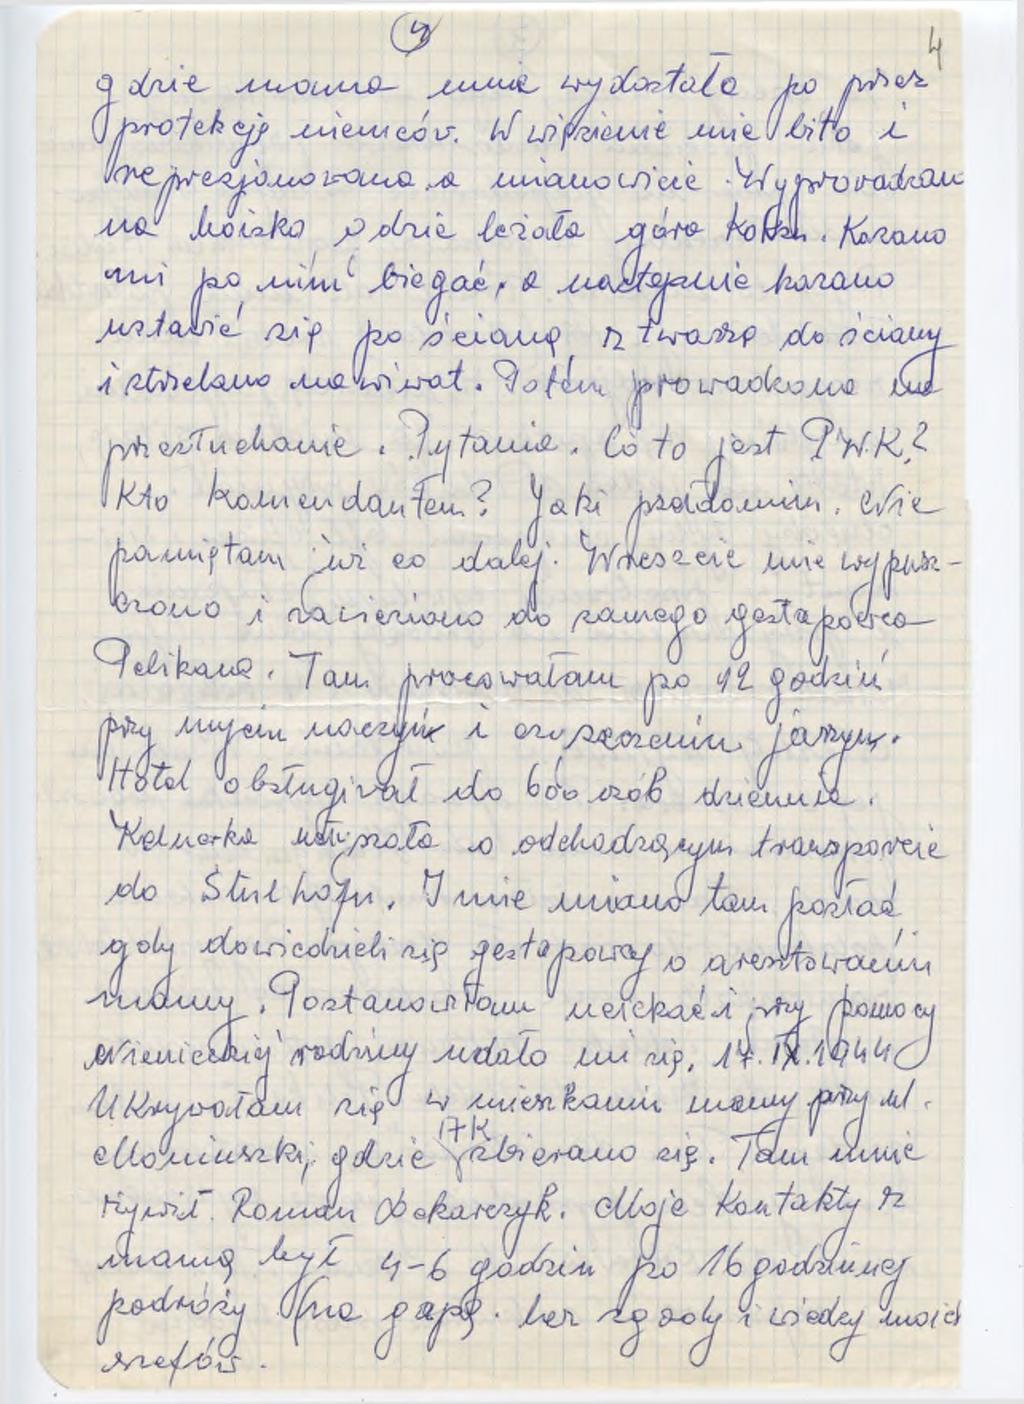 4 4
gdzie mama mnie wydostała po przez
protekcję niemców. W więzienie mie bito i
represjonowano a mianowicie. Wyprowadzano
na boisko gdzie leżała góra koksu. Kazano
mi po nim biegać, a następnie kazano
ustawić się po ścianą z twarzą do ściany
i strzelano na wiwat. Potem prowadzono na
przesłuchanie. Pytania. Co to jest P.W.K.?
Kto komendantem? Jaki Nie
pamiętam już co dalej. Wreszcie mie wypusz-
czono i zawieziono do samego gestapowca
Pelikana. Tam pracowałam po 12 godzin
przy myciu naczyń i czyszczeniu jarzyn.
Hotel obsługiwał do 600 osób dziennie.
Kelnerka usłyszała o odchodzącym transporcie
do Stuthofu. I mie miano tam posłać
gdy dowiedzieli się gestapowcy o aresztowaniu
mamy. Postanowiłam uciekać i przy pomocy
Niemieckiej rodziny udało mi się. 17.IX.1944
Ukrywałam się w mieszkaniu mamy przy ul.
Moniuszki, gdzie 17K zbierano się. Tam mnie
żywił Roman Lekarczyk. Moje kontakty z
mamą był 4-6 godzin po 16 godzinnej
podróży (na gapę. bez zgody i wiedzy moich
szefów.